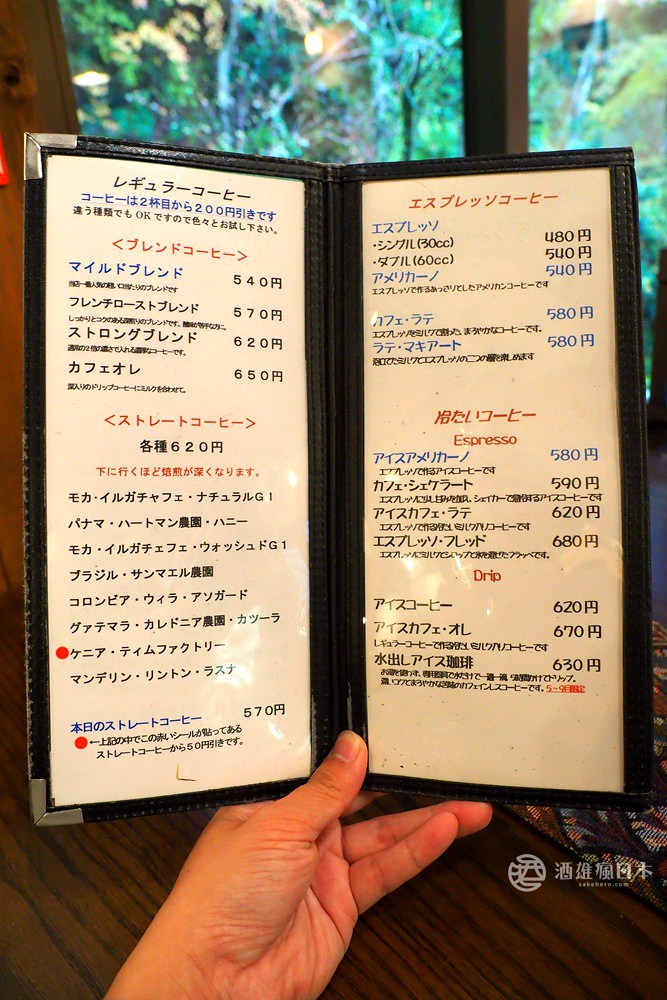 レギュラーコーヒー
コーヒーは2杯目から200円引きです
違う種類でもOKですので色々とお試し下さい。
＜ブレンドコーヒー＞
マイルドブレンド 540円
当店一番人気の軽い口当たりのブレンドです
フレンチローストブレンド 570円
しっかりとコクのある深煎りのブレンドです。酸味が苦手な方に。
ストロングブレンド 620円
通常の2倍の濃さで入れる濃厚なコーヒーです。
カフェオレ 650円
深入りのドリップコーヒーにミルクを合わせて。
＜ストレートコーヒー＞
各種620円
下に行くほど焙煎が深くなります。
モカ・イルガチャフェ・ナチュラルG1
パナマ・ハートマン農園・ハニー
モカ・イルガチェフェ・ウォッシュドG1
ブラジル・サンマエル農園
コロンビア・ウィラ・アソガード
グァテマラ・カレドニア農園・カツーラ
ケニア・ティムファクトリー
マンデリン・リントン・ラスナ
本日のストレートコーヒー 570円
←上記の中でこの赤いシールが貼ってある
ストレートコーヒーから50円引きです。
エスプレッソコーヒー
エスプレッソ
・シングル(30cc) 480円
・ダブル(60cc) 540円
アメリカーノ 540円
エスプレッソで作るあっさりとしたアメリカンコーヒーです
カフェ・ラテ 580円
エスプレッソをミルクで割った、まろやかなコーヒーです。
ラテ・マキアート 580円
泡立てたミルクとエスプレッソの二つの層を楽しめます
冷たいコーヒー
Espresso
アイスアメリカーノ 580円
エスプレッソで作るアイスコーヒーです
カフェ・シェケラート 590円
エスプレッソに少し甘みを加え、シェイカーで急冷するアイスコーヒーです
アイスカフェ・ラテ 620円
エスプレッソで作る冷たいミルク入りコーヒーです
エスプレッソ・フレッド 680円
エスプレッソにミルクとシロップと氷を混ぜたフラッペです。
Drip
アイスコーヒー 620円
アイスカフェ・オレ 670円
レギュラーコーヒーで作る冷たいミルク入りコーヒーです
水出しアイス珈琲 630円
お湯を使わず、専用器具で水だけで一滴一滴、5時間かけてドリップ。
濃いコクとまろやかな苦味のカフェインレスコーヒーです。5～9月限定
酒雄瘋日本
sakehero.com